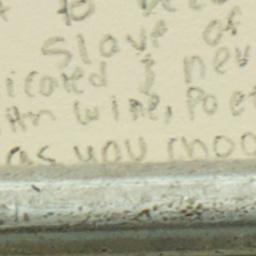 to be
slave of
icated & nev
ith wine, Poet
as you choo